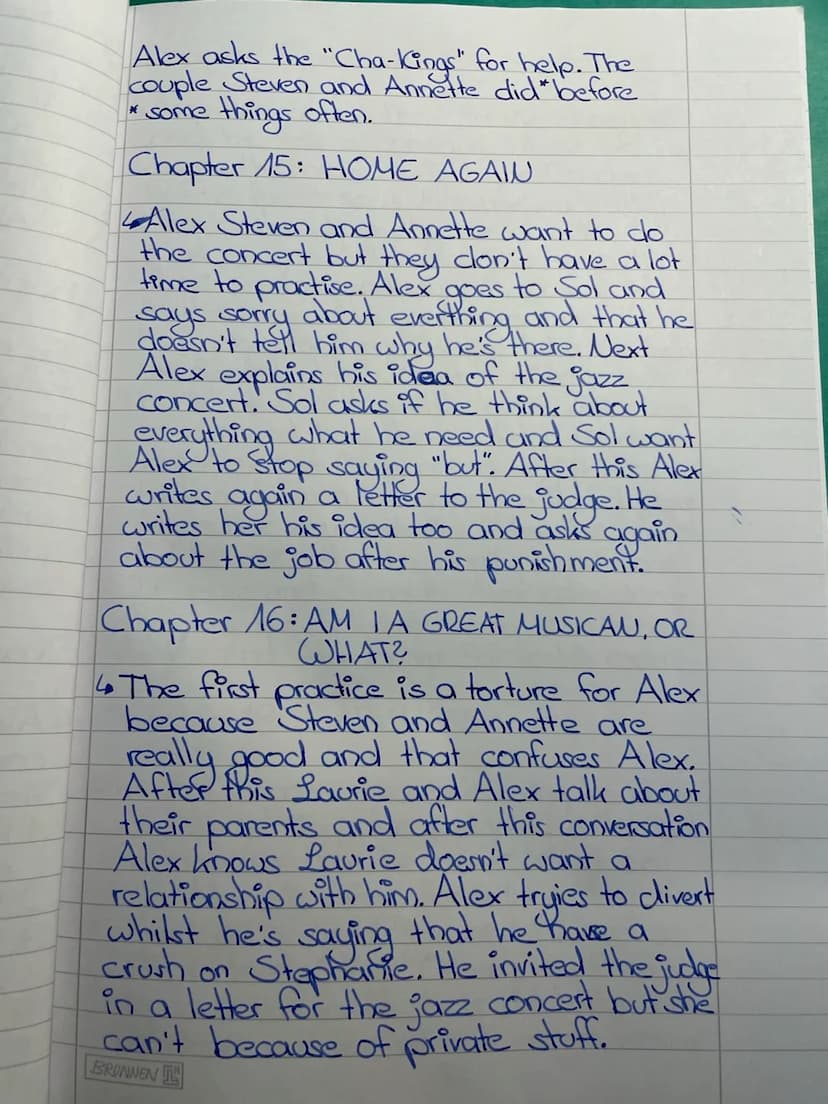 Alex asks the "Cha-Kings" for help. The
couple Steven and Annette did* before
* some things often.
Chapter 15: HOME AGAIN
↳ Alex Steven and Annette want to do
the concert but they don't have a lot
time to practise. Alex goes to Sol and
says sorry about everthing and that he
doesn't tell him why he's there. Next
Alex explains his idea of the jazz
concert. Sol asks if he think about
everything what he need and Sol want
Alex to stop saying "but". After this Alex
writes again a letter to the judge. He
writes her his idea too and asks again
about the job after his punishment.
Chapter 16: AM I A GREAT MUSICAN, OR
WHAT?
↳ The first practice is a torture for Alex
because Steven and Annette are
really good and that confuses Alex.
After this Laurie and Alex talk about
their parents and after this conversation
Alex knows Laurie doesn't want a
relationship with him. Alex tryies to divert
whilst he's saying that he have a
crush on Stephanie. He invited the judge
in a letter for the jazz concert but she
can't because of private stuff.
BRUNNEN